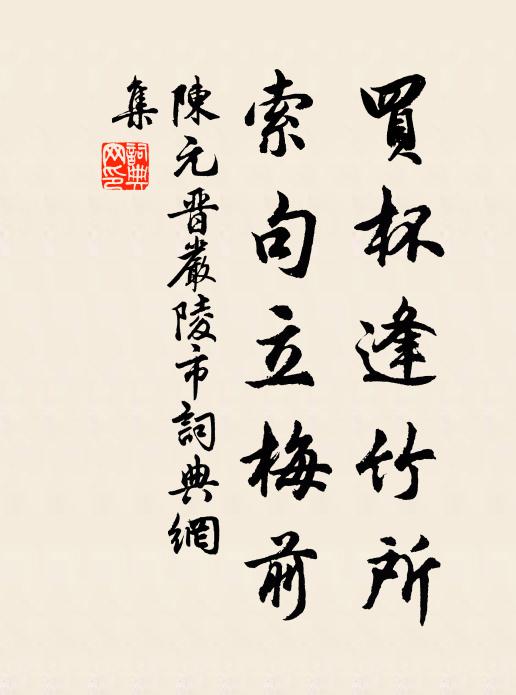 買杯逢竹所
索句立梅前
陳元晋嚴陵市詞典網
集
詞典網印